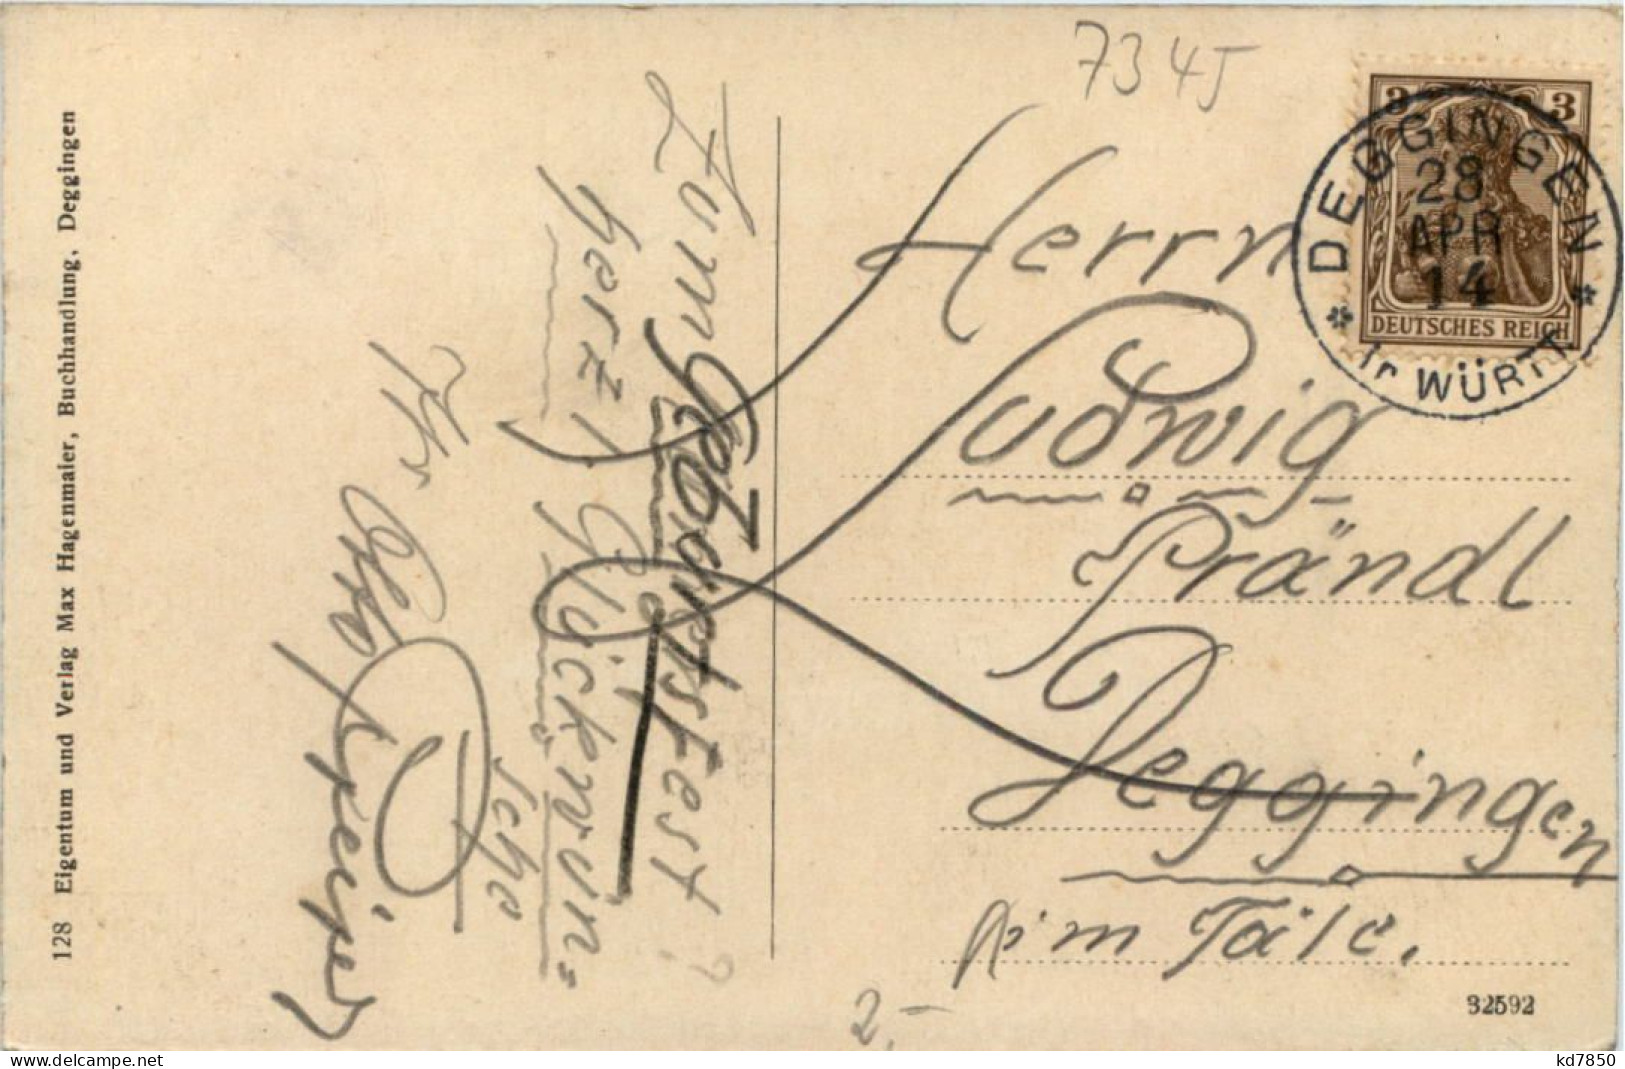 7345
3 3
DEGGINGEN
28
APR
14
DEUTSCHES REICH
WÜRTT
Herrn
Ludwig
Prändl
Deggingen
im Täle.
32592
2,-
128 Eigentum und Verlag Max Hagenmaier, Buchhandlung, Deggingen
Zum Geburtsfest
herzl. Glückwün=
sche
Ihr
akpool.com
kd7850